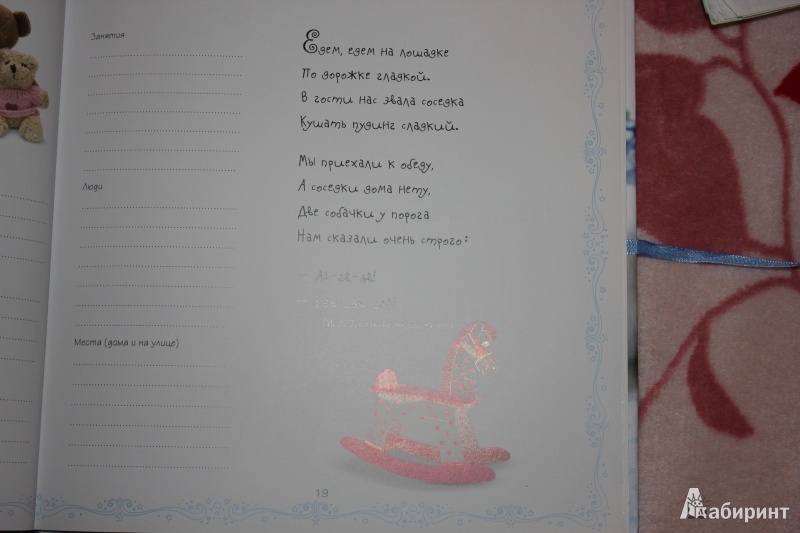 Занятия
Люди
Места (дома и на улице)
Едем, едем на лошадке
По дорожке гладкой.
В гости нас звала соседка
Кушать пудинг сладкий.
Мы приехали к обеду,
А соседки дома нету,
Две собачки у порога
Нам сказали очень строго:
19
Лабиринт